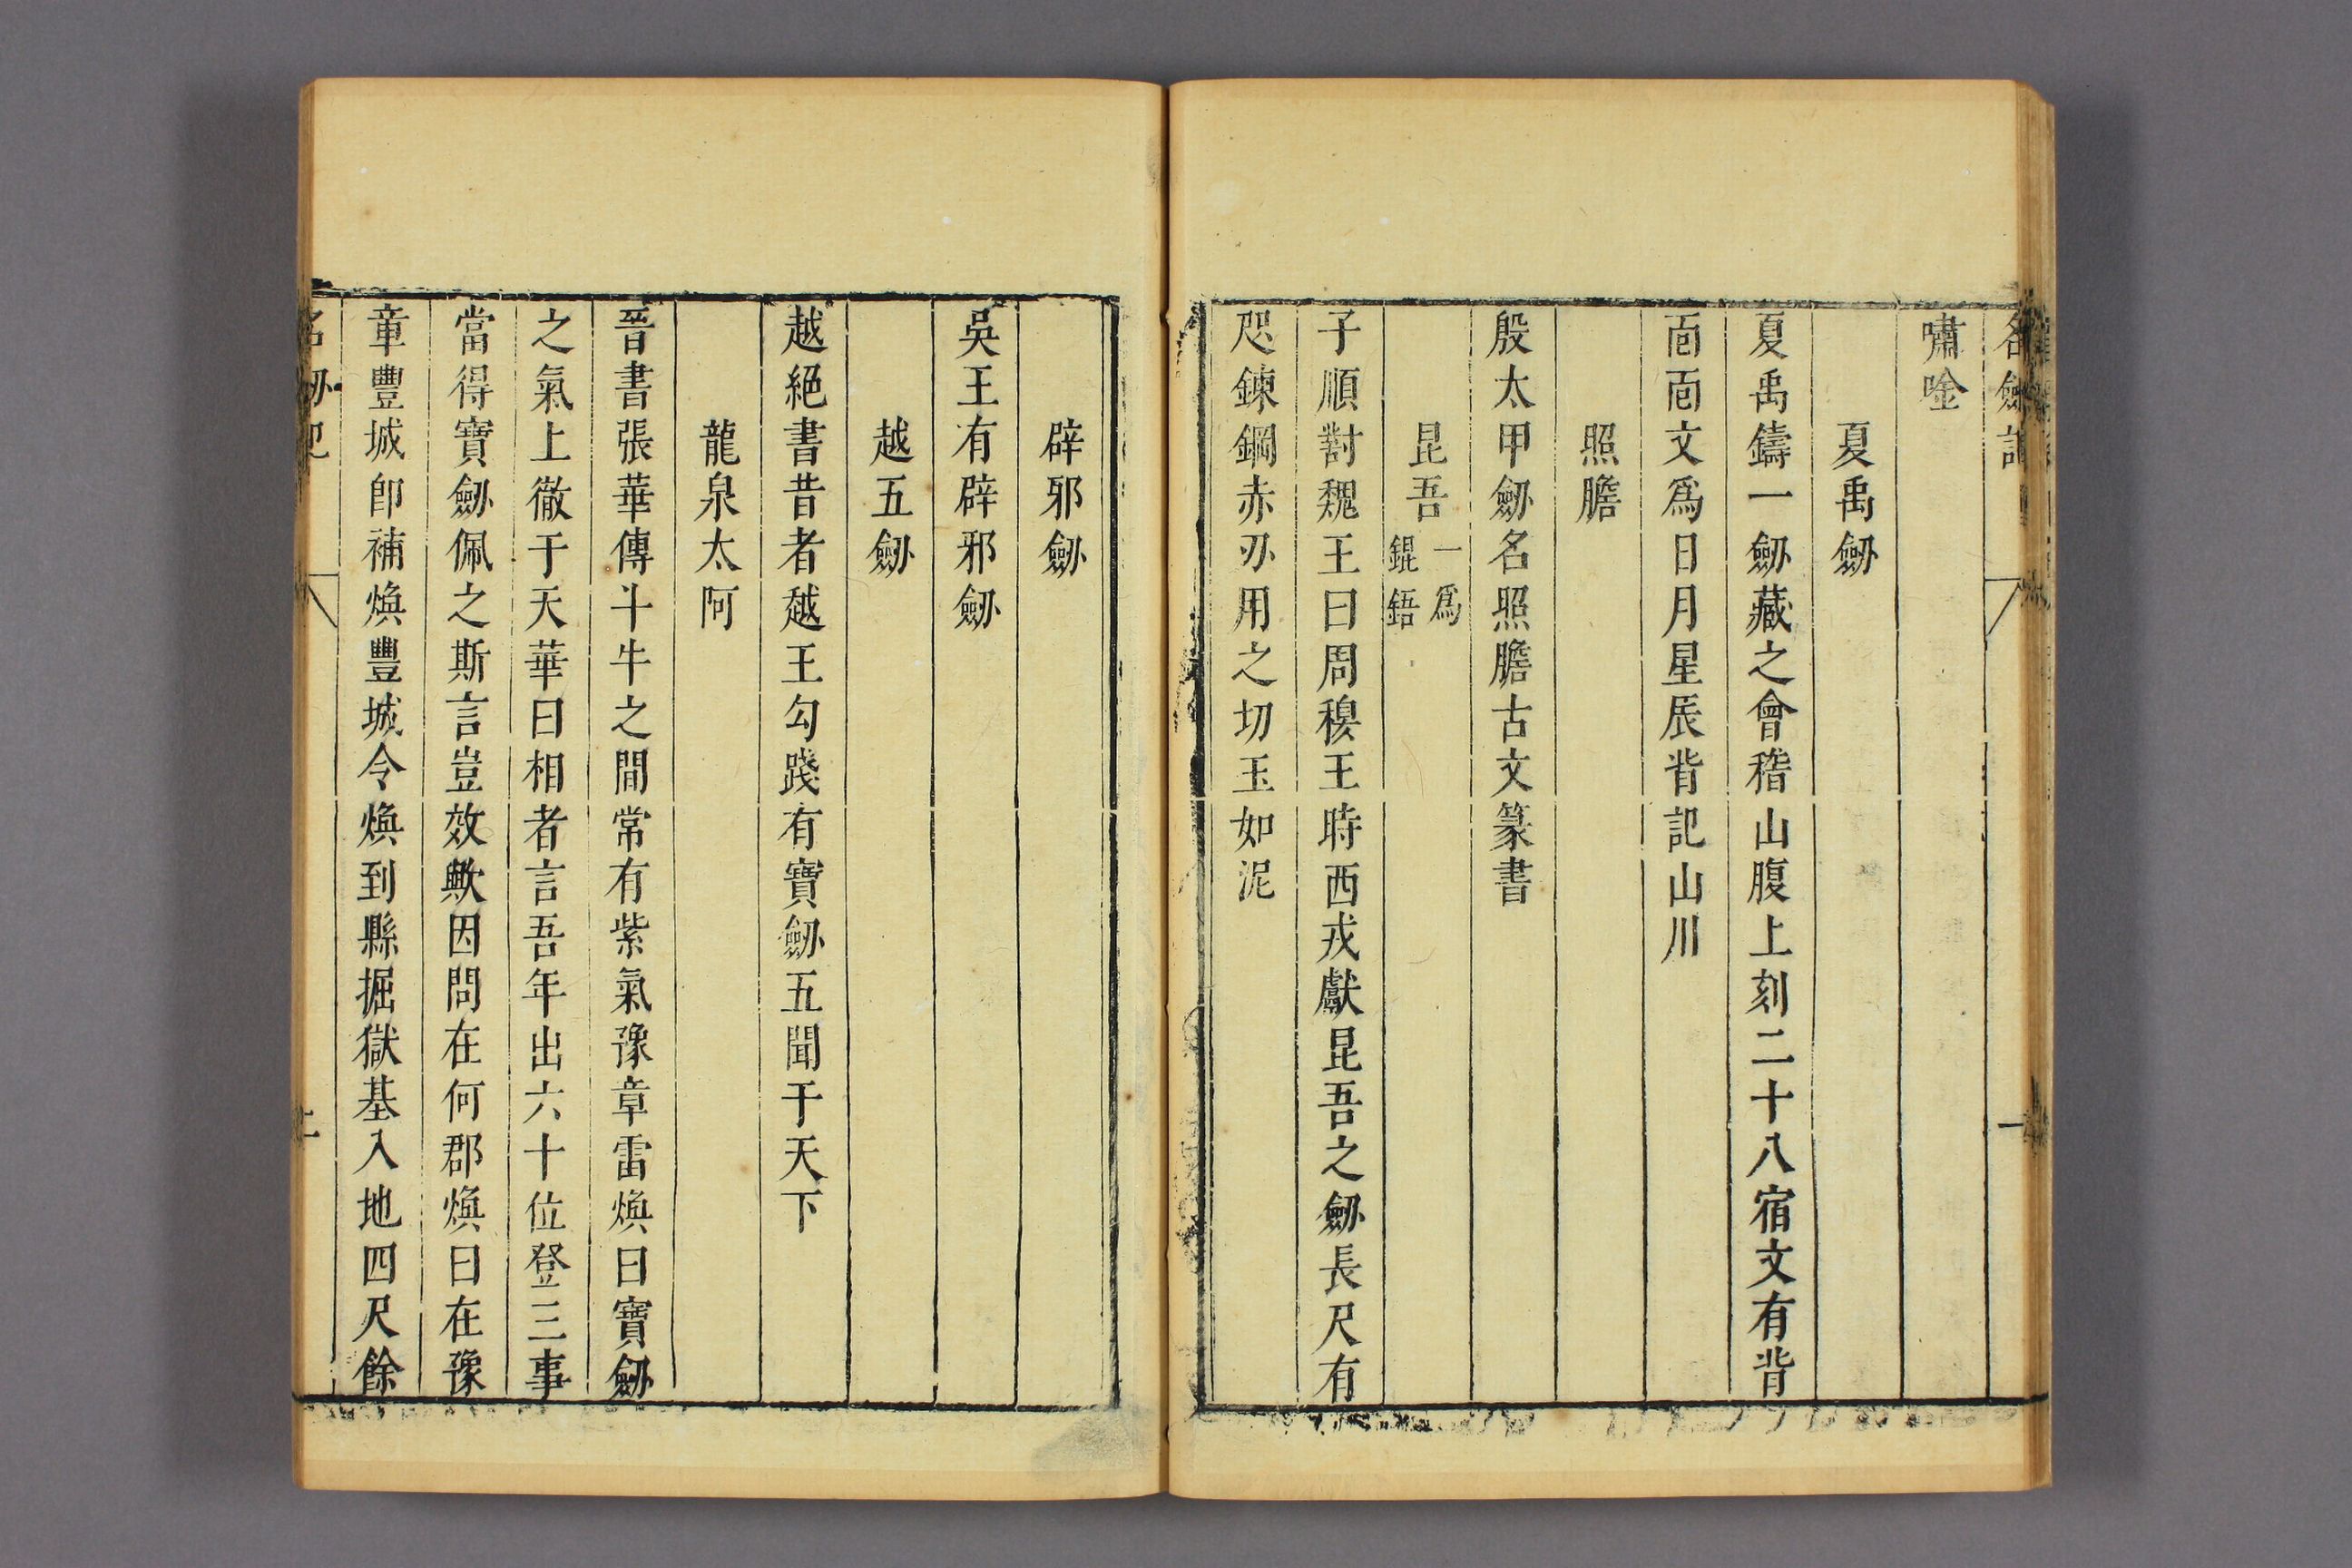 名劒記 一
嘯唫
夏禹劒
夏禹鑄一劒藏之會稽山腹上刻二十八宿文有背
靣靣文爲日月星辰背記山川
照膽
殷太甲劒名照膽古文篆書
昆吾一爲錕鋙
子順對魏王曰周穆王時西戎獻昆吾之劒長尺有
咫鍊鋼赤刃用之切玉如泥
辟邪劒
吳王有辟邪劒
越五劒
越絕書昔者越王勾踐有寶劒五聞于天下
龍泉太阿
晉書張華傳斗牛之間常有紫氣豫章雷煥曰寶劒
之氣上徹于天華曰相者言吾年出六十位登三事
當得寶劒佩之斯言豈效歟因問在何郡煥曰在豫
章豐城卽補煥豐城令煥到縣掘獄基入地四尺餘